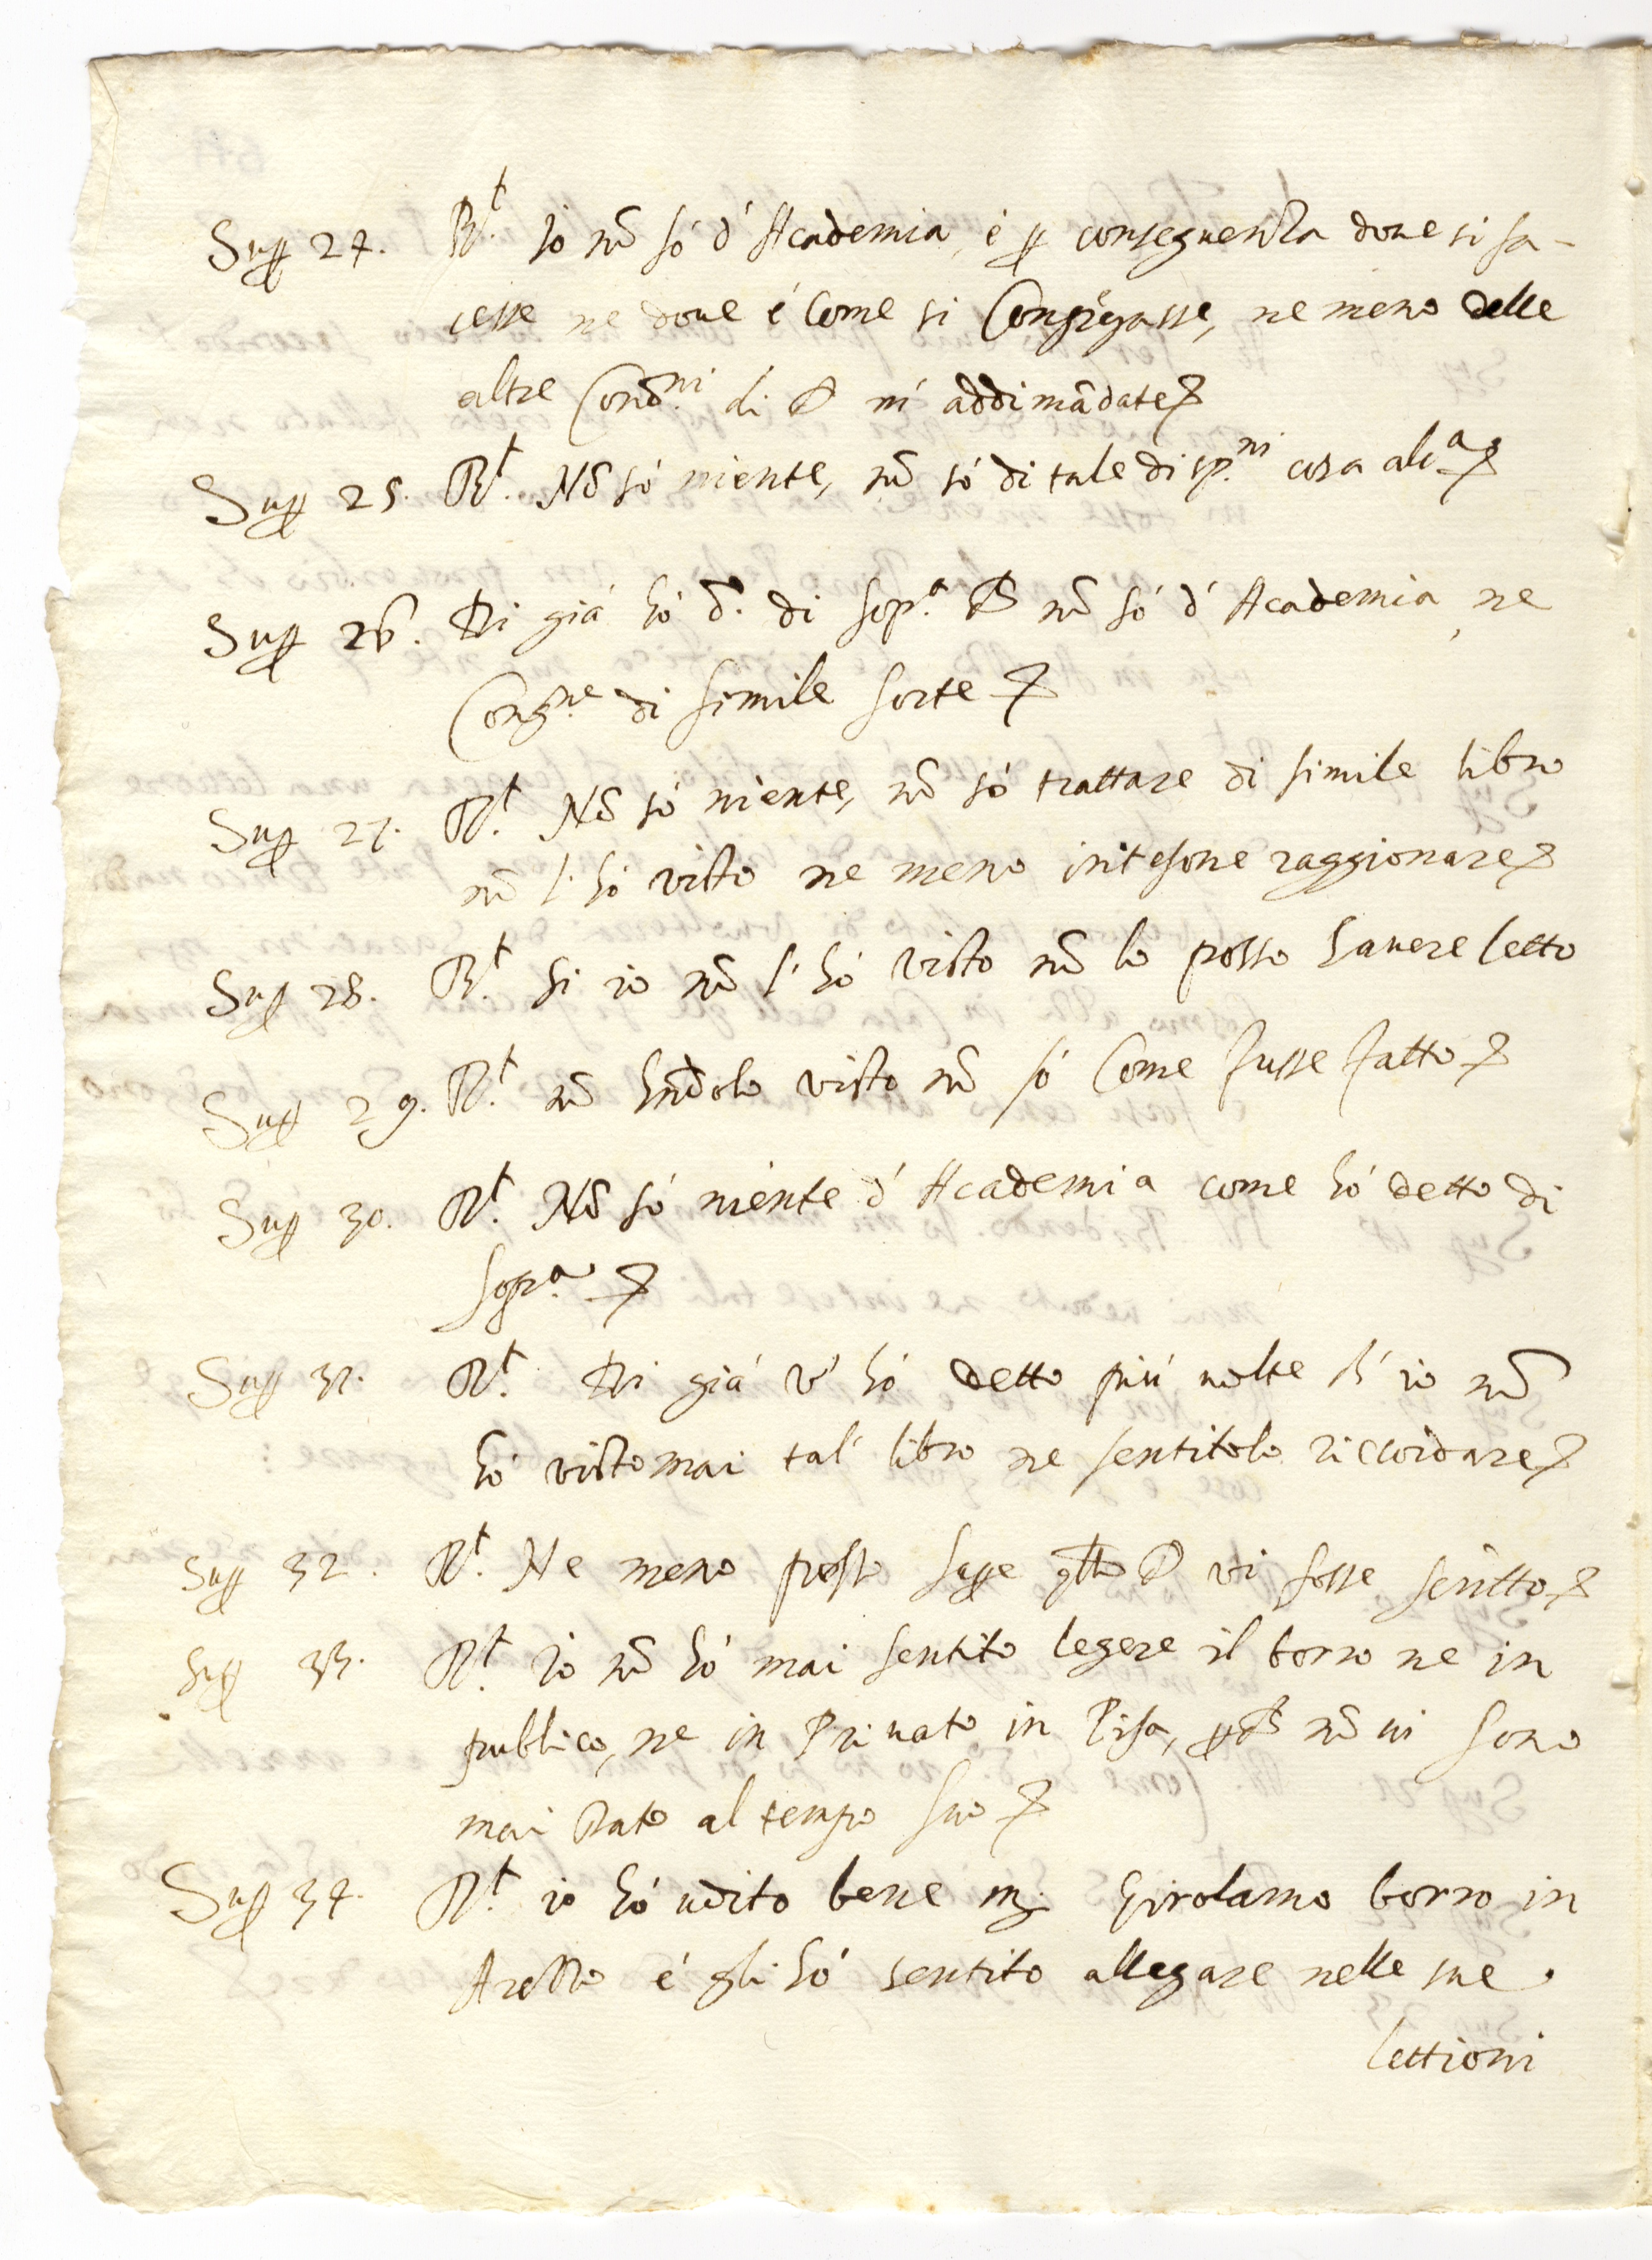 Sup 24. Rt. Io nō só d' Academia, é p conseguenza doue si fa-
cesse ne doue é Come si Congregasse, ne meno delle
altre Condni di ch m' addimādate
Sup 25. Rt. Nō só niente, nō só di tale disp.ni cosa alca
Sup 26. Di giá hó d. di sopa ch nō só d' Academia, ne
Congne di simile sorte
Sup 27. Rt. Nō só niente, nō só trattare di simile libro
nō l' hó visto ne meno intesone raggionare
Sup 28. Rt. Si io nō l' hó visto nō lo posso hauere letto
Sup 29. Rt. nō hndolo visto nō só Come fusse fatto
Sup 30. Rt. Nō só niente d' Academia come hó detto di
sopra
Sup 31. Rt. Di giá v' hó detto piú uolte ch' io nō
hó visto mai tal' libro ne sentitolo riccordare
Sup 32. Rt. Ne meno posso sapere qtto ch vi fosse scritto
Sup 33. Rt. Io nō hó mai sentito legere il borro ne in
publico, ne in Priuato in Pisa, pch nō ui sono
mai stato al tempo suo
Sup 34. Rt. io hó udito bene m. Girolamo borro in
Arezzo é gli hó sentito allegare nelle sue
lettioni